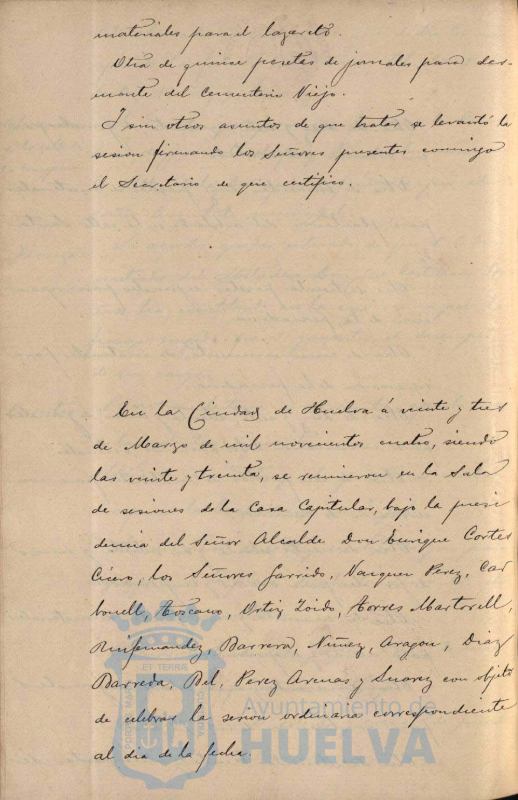 materiales para el lazareto.
Otra de quince pesetas de jornales para des-
monte del Cementerio Viejo.
I sin otros asuntos de que tratar se levantó la
sesion firmando los Señores presentes conmigo
el Secretario de que certifico.
En la Ciudad de Huelva á veinte y tres
de Marzo de mil novecientos cuatro, siendo
las veinte y treinta, se reunieron en la Sala
de sesiones de la Casa Capitular, bajo la presi
dencia del Señor Alcalde Don Enrique Cortes
Cisero, los Señores Garrido, Vazquez Perez, Car
bonell, Toscano, Ortiz Zoido, Torres Martorell,
Ruifernandez, Barrera, Nuñez, Aragon, Diaz
Barreda, Bel, Perez Arenas y Suarez con objeto
de celebrar la sesion ordinaria correspondiente
al dia de la fecha.
Ayuntamiento de
HUELVA